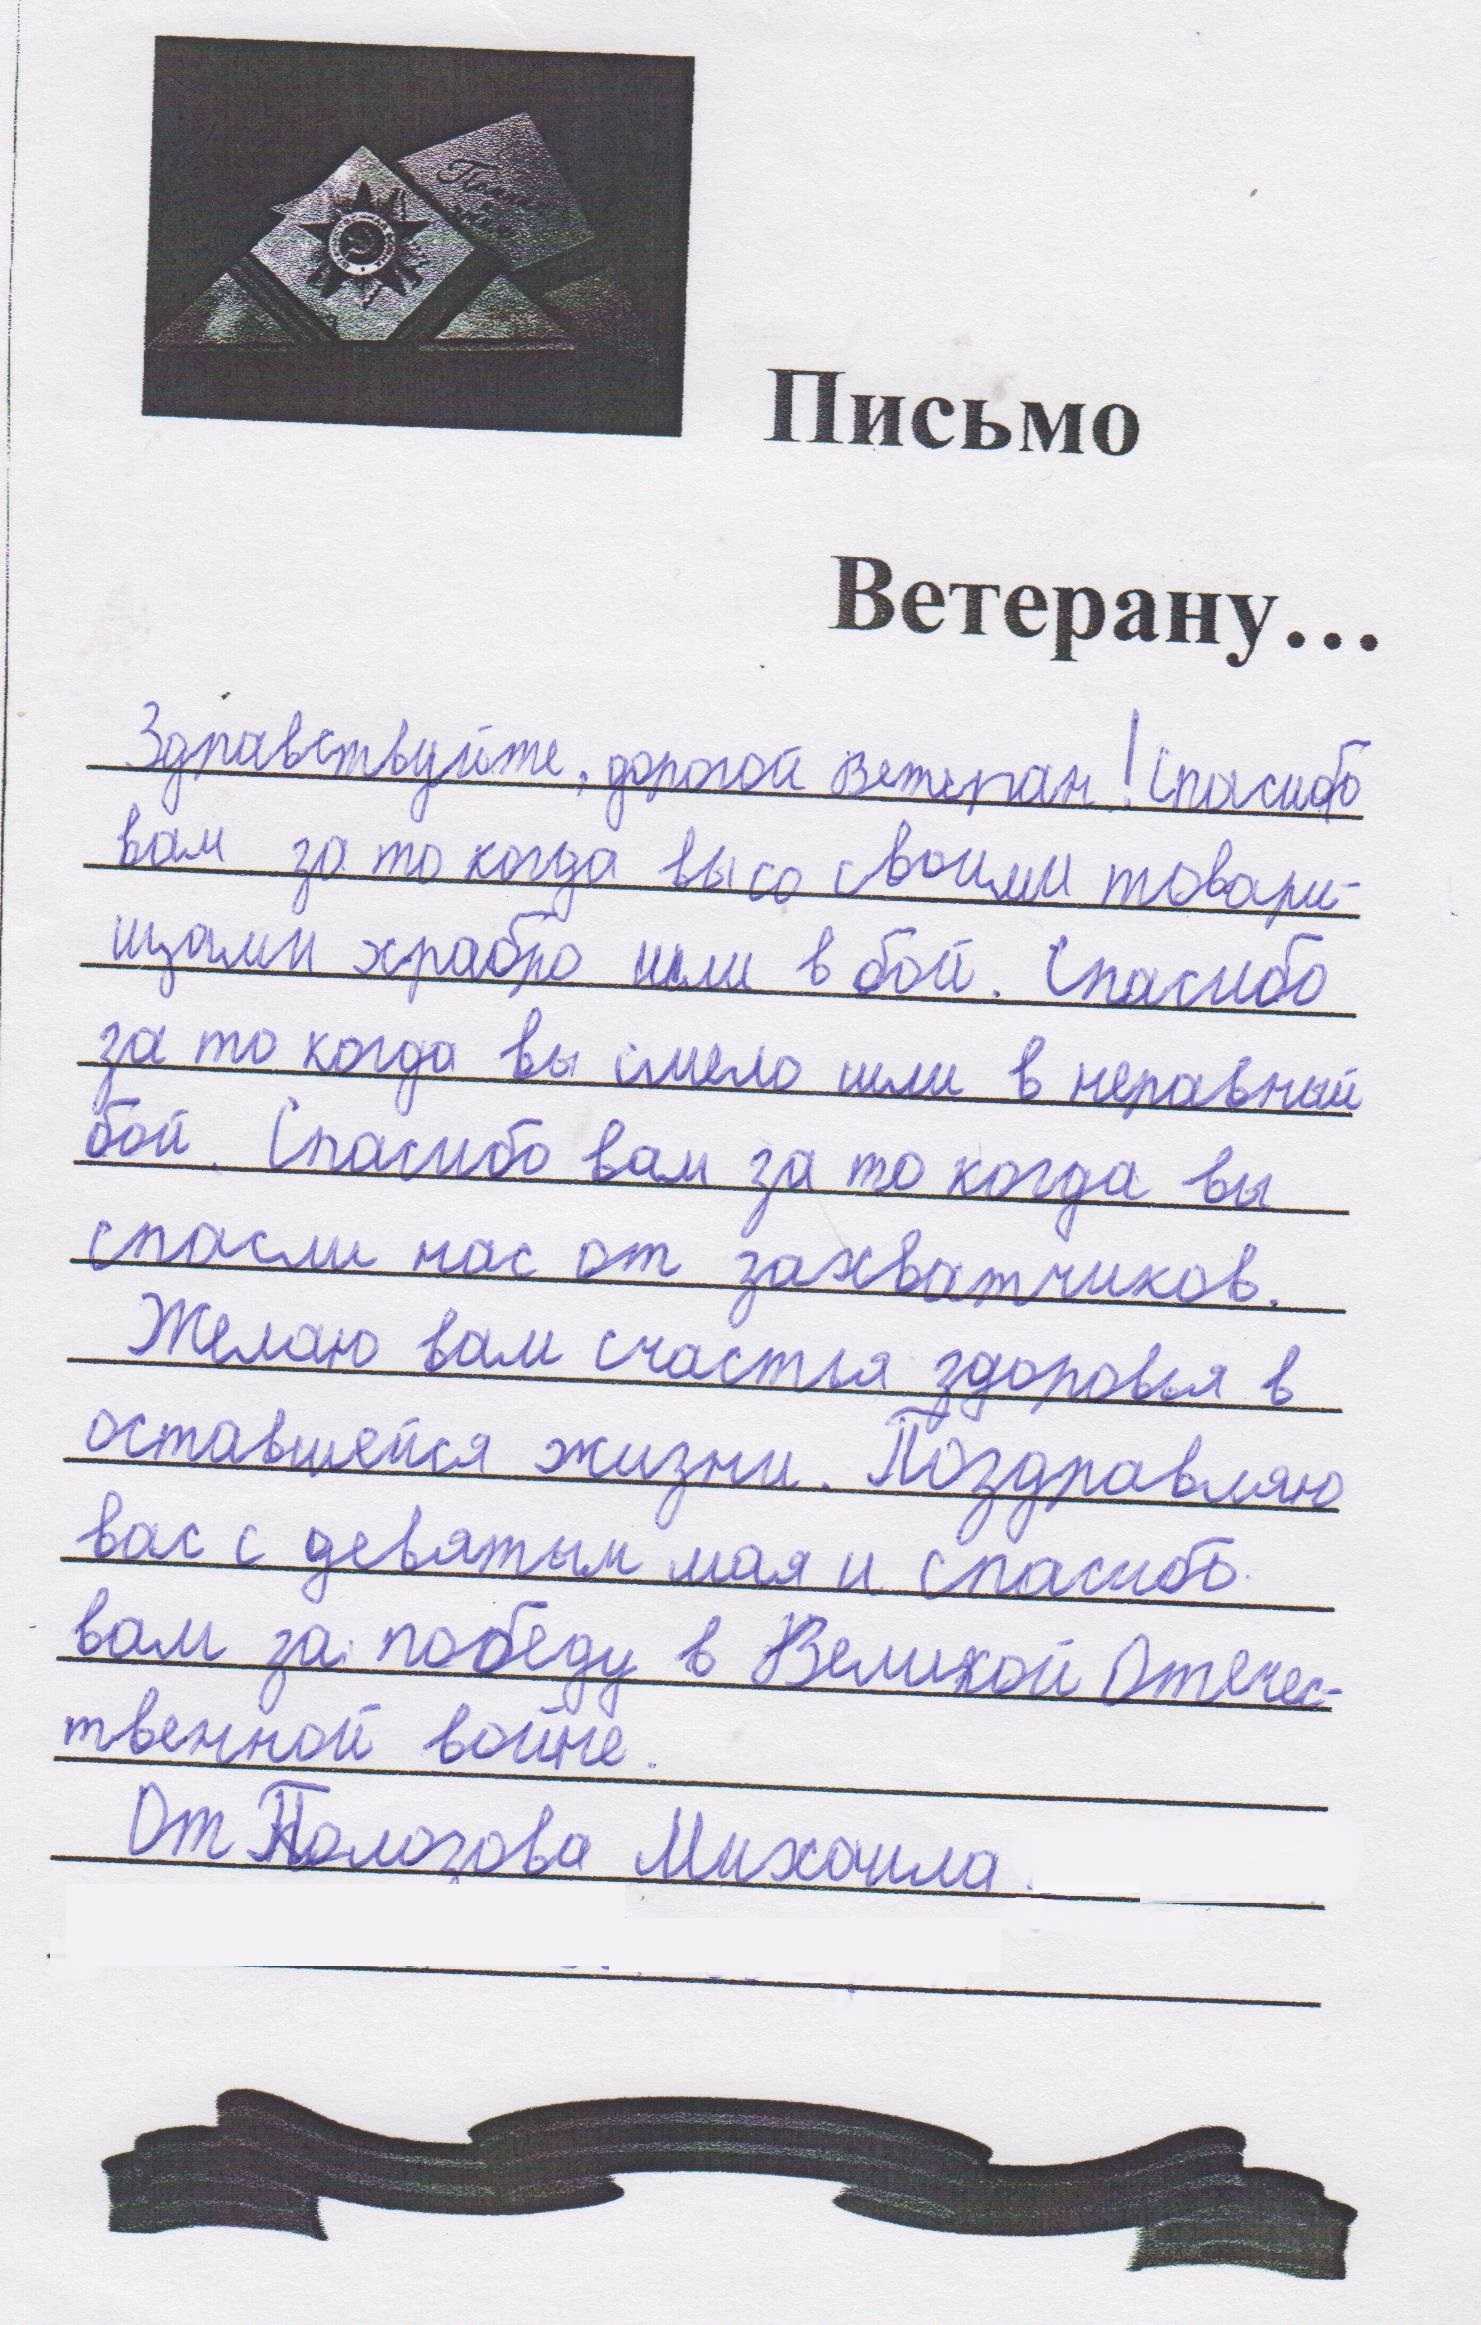 Письмо
Ветерану...
Здравствуйте, дорогой ветеран! Спасибо
вам за то когда вы со своими товари-
щами храбро шли в бой. Спасибо
за то когда вы смело шли в неравный
бой. Спасибо вам за то когда вы
спасли нас от захватчиков.
Желаю вам счастья здоровья в
оставшейся жизни. Поздравляю
вас с девятым мая и спасибо
вам за победу в Великой Отечес-
твенной войне.
От Полозова Михаила.